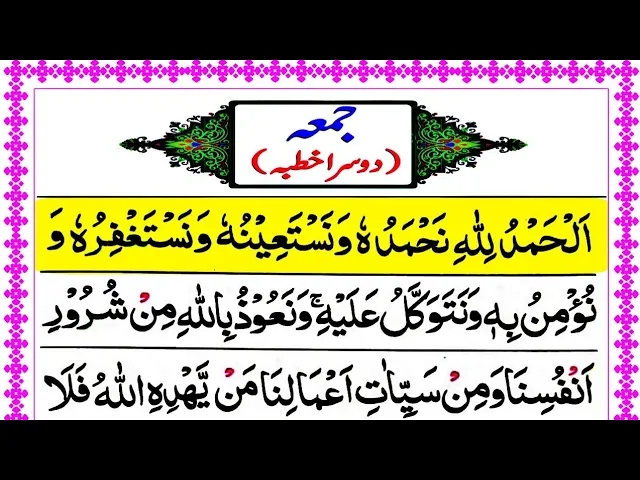 جمعہ
(دوسرا خطبہ)
اَلْحَمْدُ لِلّٰهِ نَحْمَدُهٗ وَنَسْتَعِيْنُهٗ وَنَسْتَغْفِرُهٗ وَ
نُؤْمِنُ بِهٖ وَنَتَوَكَّلُ عَلَيْهِ ۚ وَنَعُوْذُ بِاللّٰهِ مِنْ شُرُوْرِ
اَنْفُسِنَا وَمِنْ سَيِّاٰتِ اَعْمَالِنَا مَنْ يَّهْدِهِ اللّٰهُ فَلَا